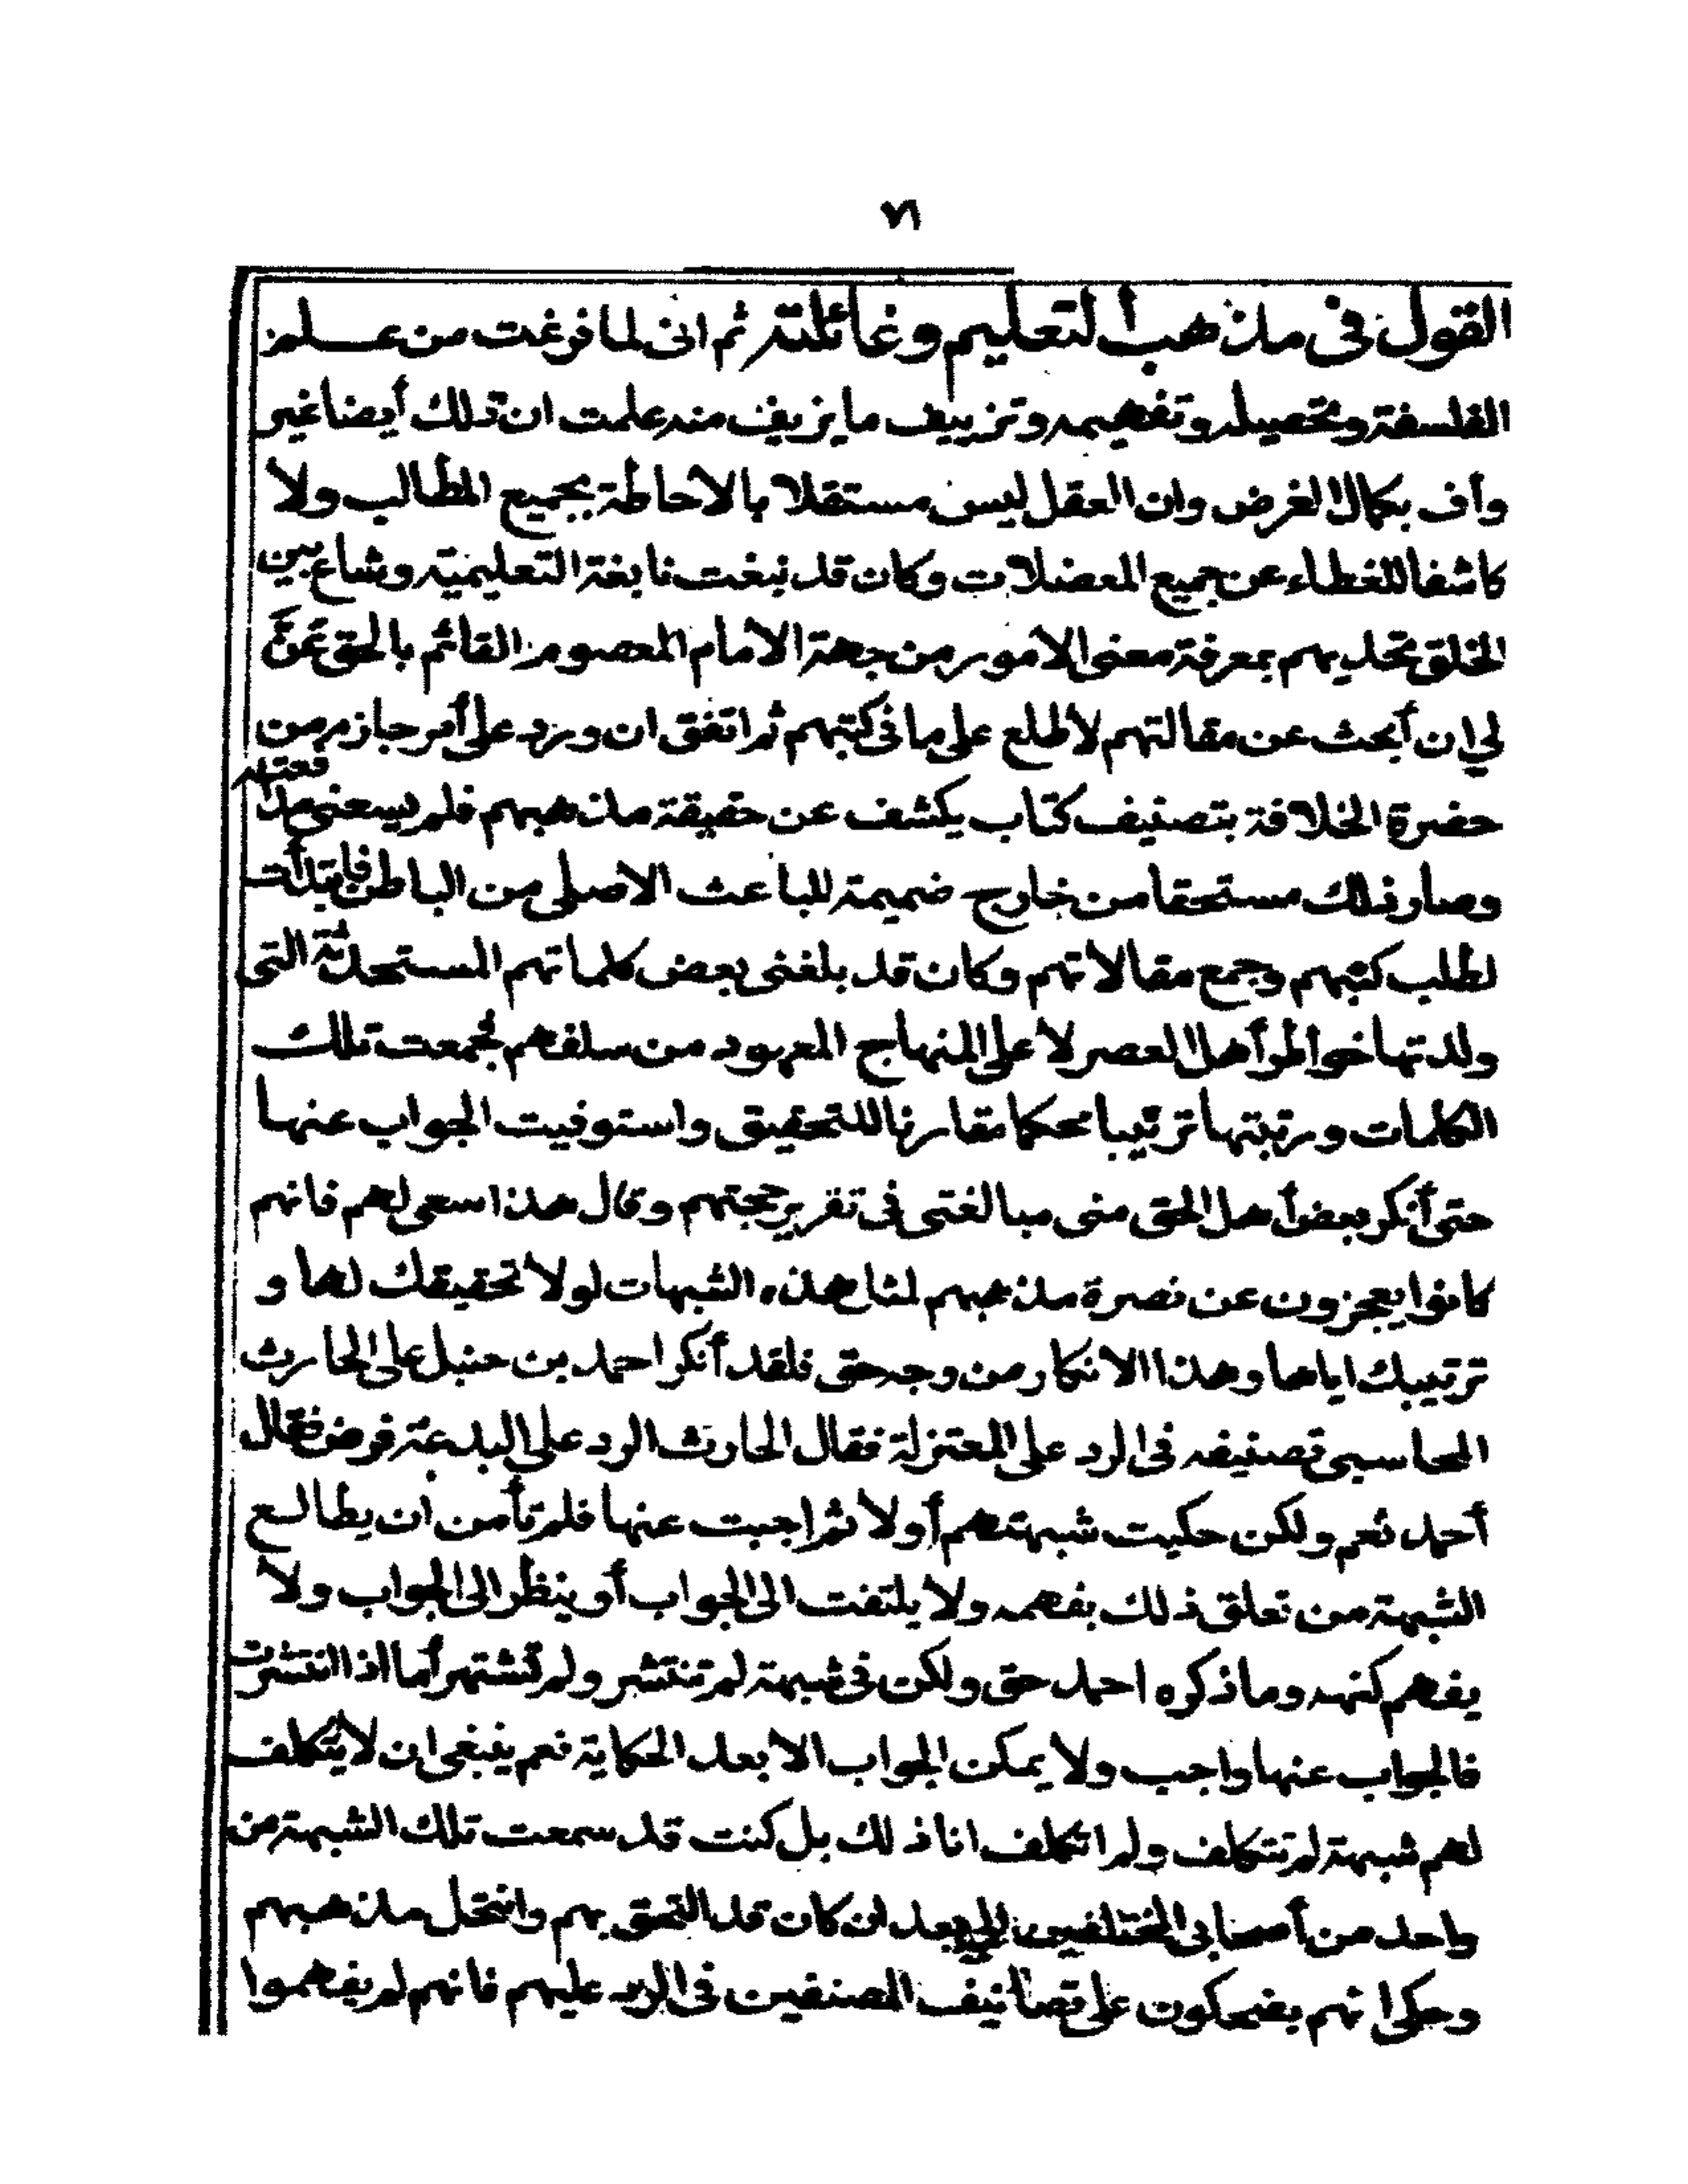 ٧٦
القول في مذهب التعليم وغائلته ثم انى لما فرغت من علم
الفلسفة وتحصيله وتفهيمه وتزييف ما يزيف منه علمت ان ذلك أيضا غير
واف بكمال الغرض وان العقل ليس مستقلا بالاحاطة بجميع المطالب ولا
كاشفا للغطاء عن جميع المعضلات وكان قد نبغت نابغة التعليمية وشاع بين
الخلق تحديهم بمعرفة معنى الامور من جهة الامام المعصوم القائم بالحق عَنَّ
لي ان أبحث عن مقالتهم لاطلع على ما في كتبهم ثم اتفق ان ورد على أمر جازم من
حضرة الخلافة بتصنيف كتاب يكشف عن حقيقة مذهبهم فلم يسعنى مدافعته
وصار ذلك مستحقا من خارج ضميمة للباعث الاصلى من الباطن فابتدأت
لطلب كتبهم وجمع مقالاتهم وكان قد بلغنى بعض كلماتهم المستحدثة التى
ولدتها خواطر أهل العصر لا على المنهاج المعهود من سلفهم فجمعت تلك
الكلمات ورتبتها ترتيبا محكما مقارنا للتحقيق واستوفيت الجواب عنها
حتى أنكر بعض أهل الحق منى مبالغتى في تقرير حجتهم وقال هذا سعى لهم فانهم
كانوا يعجزون عن نصرة مذهبهم لمثل هذه الشبهات لولا تحقيقك لها و
ترتيبك اياها وهذا الانكار من وجه حق فلقد أنكر احمد بن حنبل على الحارث
المحاسبى تصنيفه في الرد على المعتزلة فقال الحارث الرد على البدعة فرض فقال
أحمد نعم ولكن حكيت شبهتهم أولا ثم اجبت عنها فلم تأمن ان يطالع
الشبهة من تعلق ذلك بفهمه ولا يلتفت الى الجواب أو ينظر الى الجواب ولا
يفهم كنهه وما ذكره احمد حق ولكن في شبهة لم تنتشر ولم تشتهر أما اذا انتشرت
فالجواب عنها واجب ولا يمكن الجواب الا بعد الحكاية نعم ينبغى ان لا يتكلف
لهم شبهة لم تتكلف ولم اتكلف انا ذلك بل كنت قد سمعت تلك الشبهة من
واحد من أصحابى المختلفين الي بعد ان كان قد التحق بهم وانتحل مذهبهم
وحكى انهم يضحكون على تصانيف المصنفين في الرد عليهم فانهم لم يفهموا